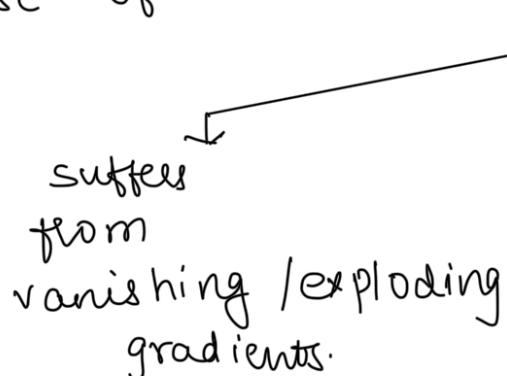 of
suffers
from
vanishing /exploding
gradients.